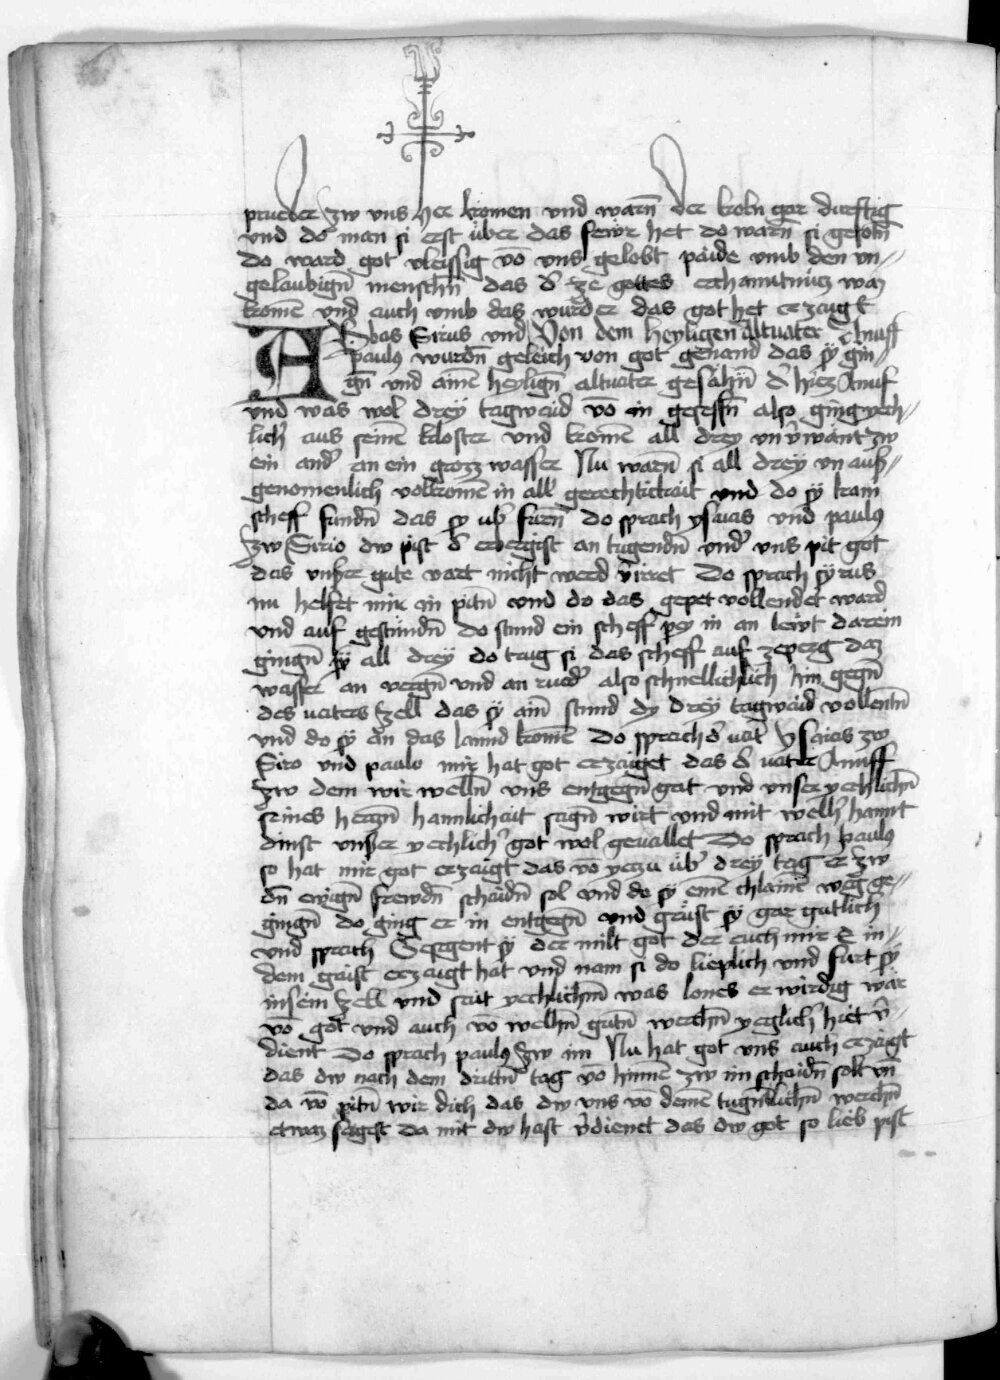 prueder zw vns her komen vnd warn̄ der koln gar durftig
vnd do man si erst über das fewr het do warn̄ si geholn̄
do ward got vleissig vō vns gelobt paide vmb den vn-
gelaubign̄ menschn̄ das d' ze gottes erchantnüz waz
komēn vnd auch vmb das wunder das got het erzaugt
Abbas Sirus vnd Von dem heyligen altuater Anuff
paulus wurdn̄ geleich von got genand das sÿ gin-
gn̄ vnd ainē heylign̄ altuater gesähn̄ d' hiez Anuf
vnd was wol dreÿ tagwaid vō in gesessn̄ also ging yech-
lich' aus seinē kloster vnd komēn all dreÿ vn v'wänt zw
ein and' an ein grozz wasser Nu warn̄ si all dreÿ vn auß-
genomenlich volkomē in all' gerechtickait vnd do sÿ kain
scheff fundn̄ das sÿ vb' fürn̄ do sprach ysaias vnd paulus
zw Sirio dw pist d' erbergist an tugendn̄ vnd' vns pit got
das vnser gute vart nicht werd v'irret Do sprach sÿrus
nu helfet mir in pitn̄ vnd do das gepet vollendet ward
vnd auf gestündn̄ do stund ein scheff pey in an lewt darein
gingn̄ sÿ all dreÿ do trug si das scheff auf zeperg daz
wasser an vergn̄ vnd an rued' also schnellichlich hin gegn̄
des uaters zell das sÿ ainē stund dy dreÿ tagwaid vollentn̄
vnd do sÿ an das lannd komēn Do sprach d' uat' Ysaias zw
Siro vnd paulo mir hat got erzaiget das d' uater Anuff
zw dem wir welln̄ vns entgegn̄ get vnd vnser yechlichn̄
seines herczn̄ haimlichait sagn̄ wirt vnd mit welh' hannt
dinst vnser yechlich' got wol geuallet Do sprach paulus
so hat mir got erzaigt das vō yezu üb' dreÿ tag er zw
dn̄ ewign̄ frewdn̄ schaidn̄ sol vnd do sÿ einē chlainē weg ge-
gingn̄ do ging er in entgegn̄ vnd grüst sÿ gar gütlich
vnd sprach Gesegent sÿ der milt got der euch mir E in-
dem gaist erzaugt hat vnd nam si do lieplich vnd furt sÿ
in sein zell vnd sait yechlichm̄ was lones er wirdig wär
vō got vnd auch vō welhn̄ gutn̄ werchn̄ yeglich' hiet v'-
dient Do sprach paulus zw im Nu hat got vns auch erzaigt
das dw nach dem drittn̄ tag vō hinnē zw im schaidn̄ solt vn̄
da vō pitn̄ wir dich das dw vns vō deinē tugentlichn̄ werchn̄
etwaz sagest da mit dw hast v'dienet das dw got so lieb pist